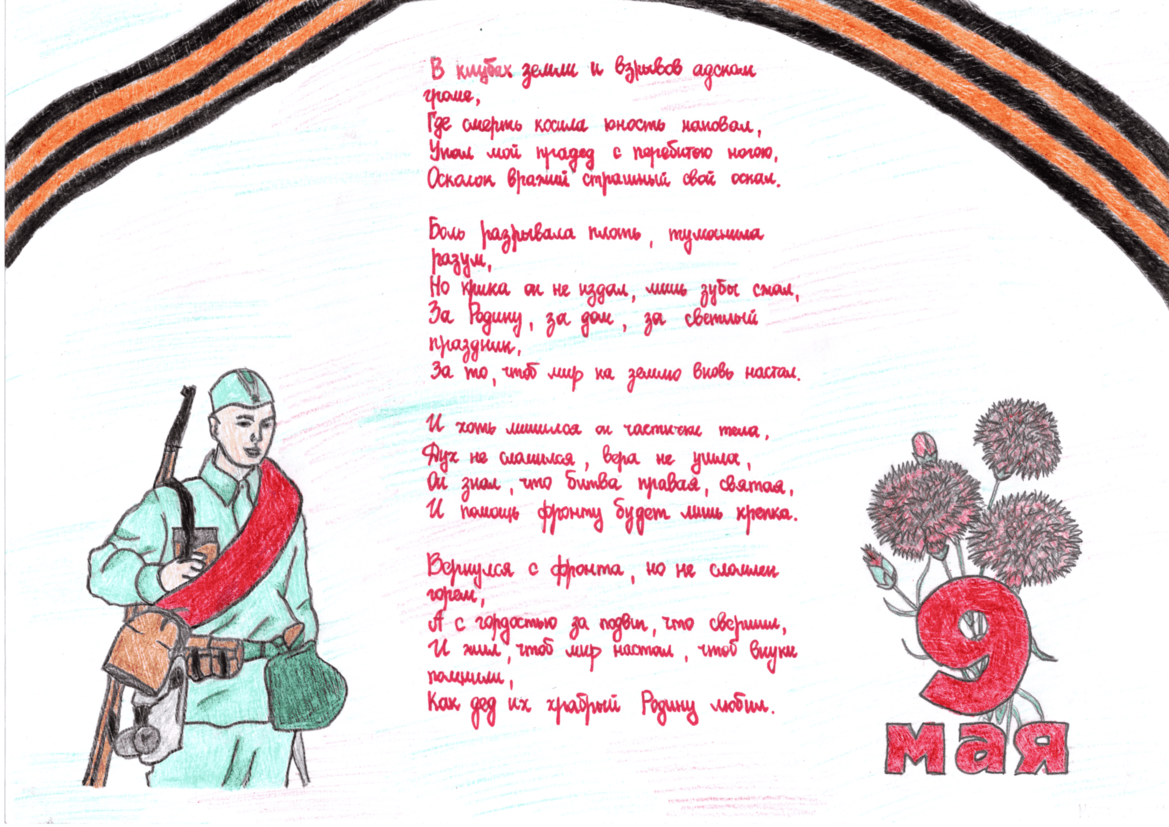 В клубах земли и взрывов адском
громе,
Где смерть косила юность наповал,
Упал мой прадед с перебитою ногою,
Осколок вражий страшный свой оскал.
Боль разрывала плоть, туманила
разум,
Но крика он не издал, лишь зубы сжал,
За Родину, за дом, за светлый
праздник,
За то, чтоб мир на землю вновь настал.
И хоть лишился он частички тела,
Дух не сломился, вера не ушла,
Он знал, что битва правая, святая,
И помощь фронту будет лишь крепка.
Вернулся с фронта, но не сломлен
горем,
А с гордостью за подвиг, что свершил,
И жил, чтоб мир настал, чтоб внуки
помнили,
Как дед их храбрый Родину любил.
9
мая